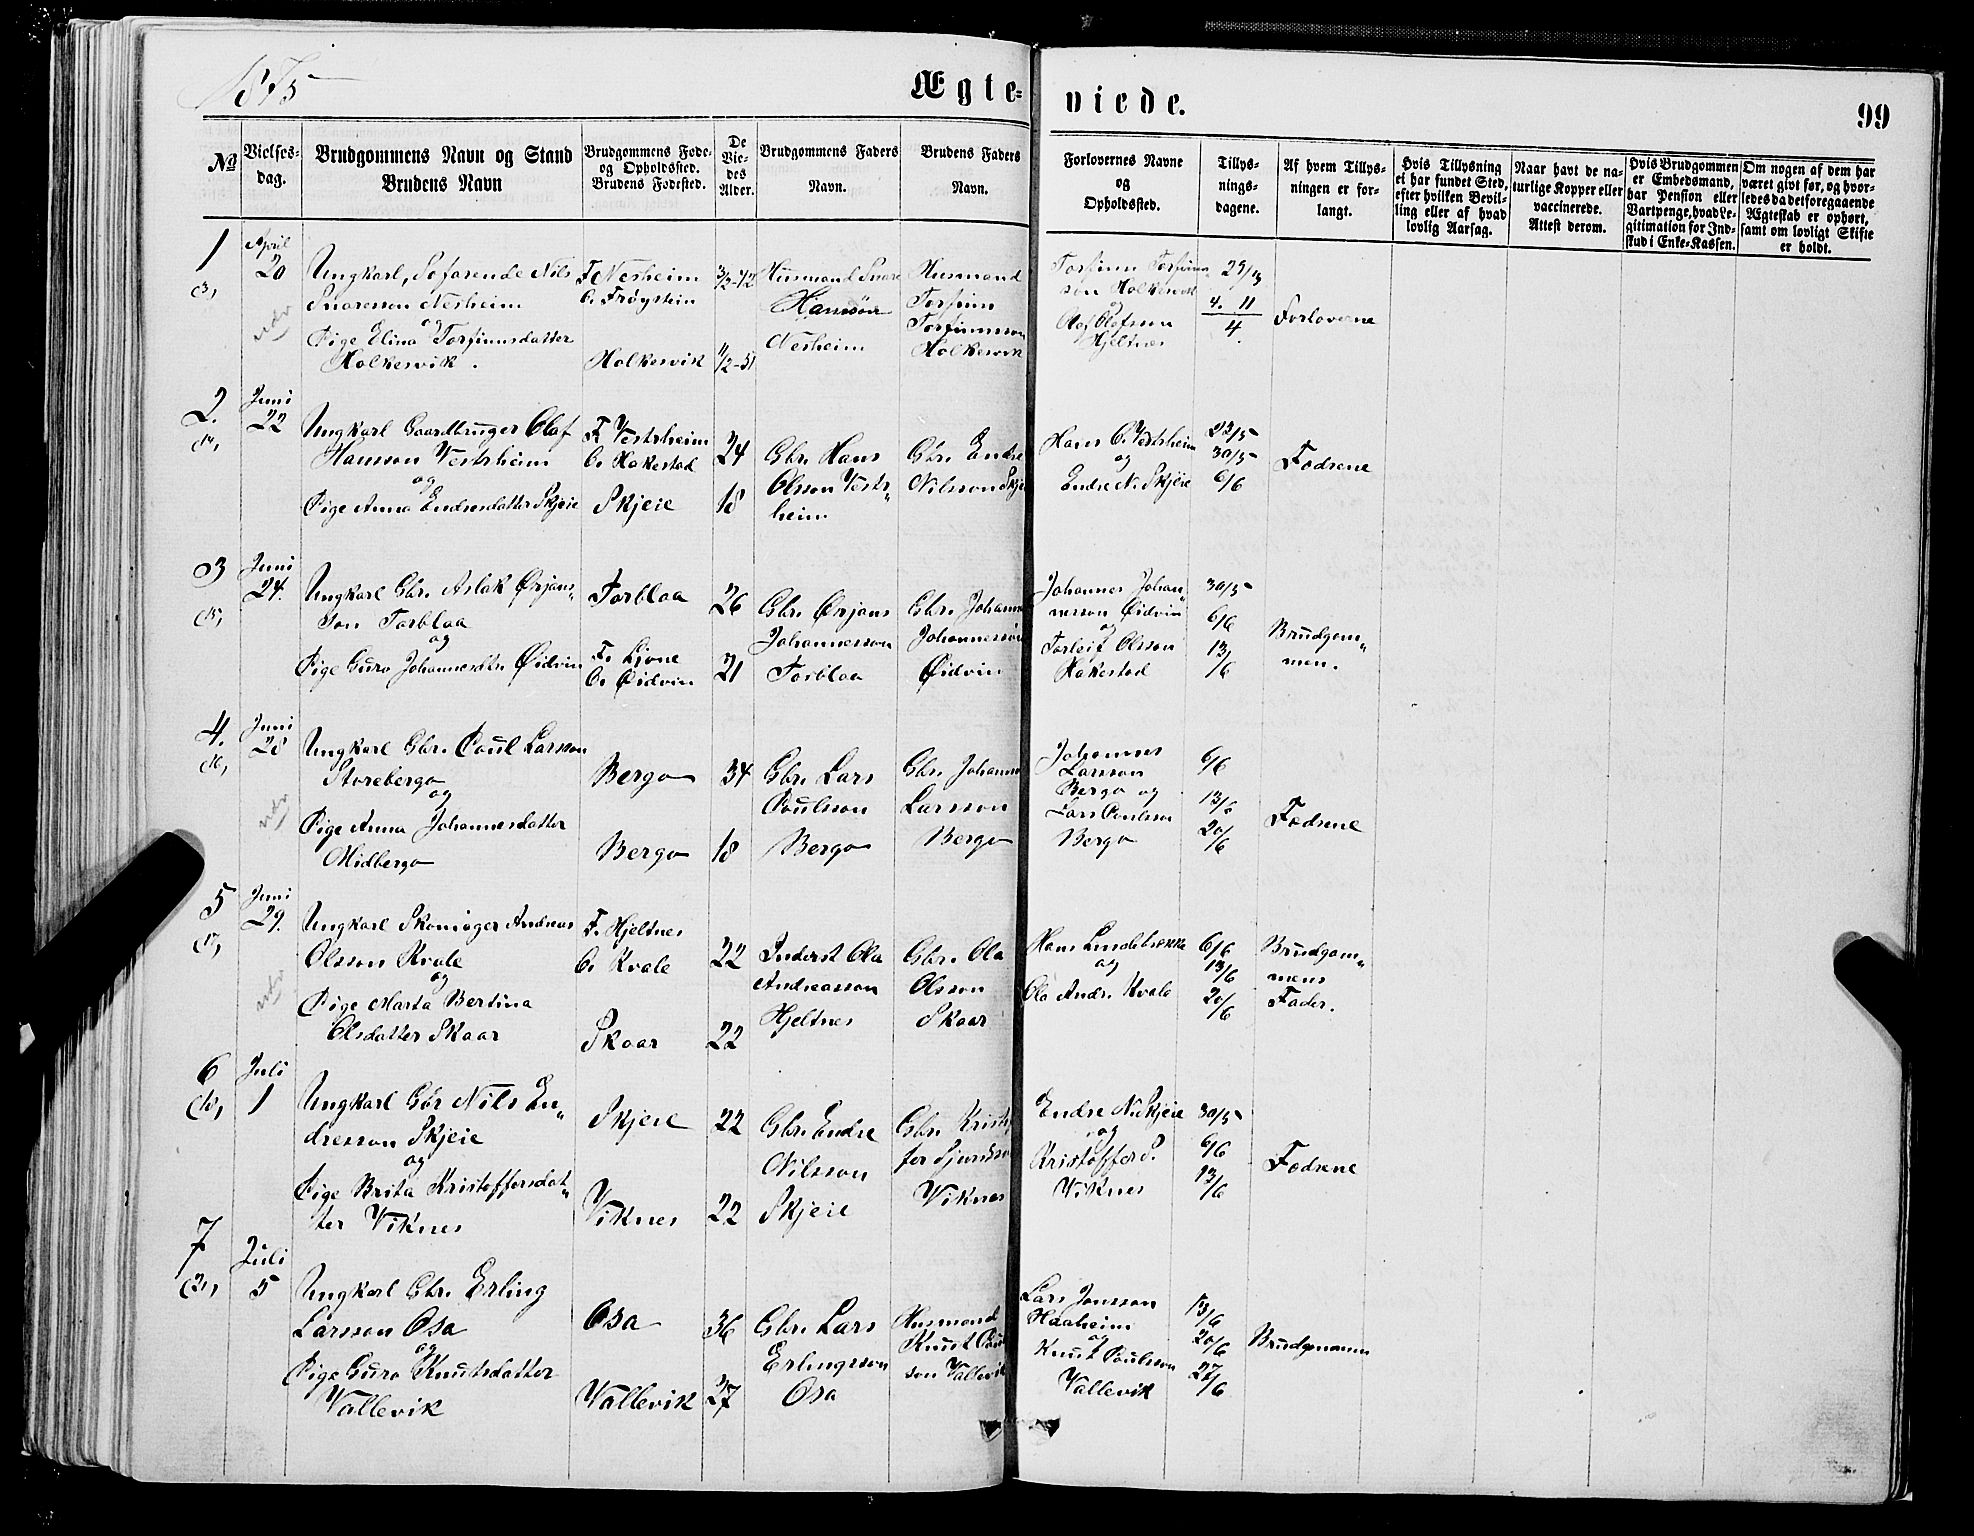 1875
Ægte-
viede.
99
No
Vielses-
dag.
Brudgommens Navn og Stand
Brudens Navn
Brudgommens Føde-
og Opholdssted.
Brudens Fødested.
De
Vie-
des
Alder.
Brudgommens Faders
Navn.
Brudens Faders
Navn.
Forlovernes Navne
og
Opholdssted.
Tillys-
nings-
dagene.
Af hvem Tillys-
ningen er for-
langt.
Hvis Tillysning
ei har fundet Sted,
efter hvilken Bevil-
ling eller af hvad
lovlig Aarsag.
Naar havt de na-
turlige Kopper eller
vaccinerede.
Attest derom.
Hvis Brudgommen
er Embedsmand,
har Pension eller
Vartpenge, hvad Le-
gitimation for Ind-
skud i Enke-Kassen.
Om nogen af dem har
været gift før, og hvor-
ledes da det foregaaende
Ægteskab er ophørt,
samt om lovligt Skifte
er holdt.
1
(3,
April
20
Ungkarl, Søfarende Nils
Snaresson Nesheim
og
Pige Elina Torfinnsdatter
Holkesvik.
F. Nesheim
O. Frøystein
Holkesvik
11/2-51
Husmand Snare
Hansson
Nesheim
Husmand
Torfinn
Torfinnsson
Holkesvik
Torfinn Torfinns-
son Holkesvik
og
Olaf Olafsson
Hjeltnes
29/3
4. 11
4
Forloverne
2.
Juni
22
Ungkarl Gaardbruger Olaf
Hansson Vestrheim
og
Pige Anna Endresdatter Skjeie
F. Vestrheim
O. Hakestad
Skjeie
24
18
Gbr. Hans
Olsson Vestr-
heim
Gbr. Endre
Nilsson Skjeie
Hans O. Vestrheim
og
Endre N. Skjeie
23/5
30/5
6/6
Fædrene
3
Juni
24.
Ungkarl Gbr. Aslak Ørjans-
son Torblaa
og
Pige Guro Johannesdtr. Øidvin
Torblaa
F. Ljone
O. Øidvin
26
21
Gbr. Ørjans
Johannesson
Torblaa
Gbr. Johannes
Johannesson
Øidvin
Johannes Johan-
nesson Øidvin
og
Torleif Olsson
Hakestad
30/5
6/6
13/6
Brudgom-
men.
4.
Juni
28
Ungkarl Gbr. Poul Larsson
Storebergo
og
Pige Anna Johannesdatter
Midbergo
Bergo
Bergo
34
18
Gbr. Lars
Poulsson
Bergo
Gbr. Johannes
Larsson
Bergo
Johannes
Larsson
Bergo og
Lars Poulsson
Bergo
6/6
13/6
20/6
Fædrene
5
Juni
29.
Ungkarl Skomager Andreas
Olsson Kvale
og
Pige Marta Bertina
Olsdatter Skaar
F. Hjeltnes
O. Kvale
Skaar
22
22
Inderst Ola
Andreasson
Hjeltnes
Gbr. Ola
Olsson
Skaar
Hans Lindebrekke
og
Ola Andr. Kvale
6/6
13/6
20/6
Brudgom-
mens
Fader.
6
Juli
1
Ungkarl Gbr Nils En-
dresson Skjeie
og
Pige Brita Kristoffersdat-
ter Viknes
Skjeie
Viknes
22
22
Gbr. Endre
Nilsson
Skjeie
Gbr. Kristof-
fer Sjursson
Viknes
Endre N. Skjeie
og
Kristoffer S.
Viknes
30/5
6/6
13/6
Fædrene
7
Juli
5
Ungkarl Gbr. Erling
Larsson Osa
og
Pige Guro Knutsdatter
Vallevik
Osa
Vallevik
36
27
Gbr. Lars
Erlingsson
Osa
Husmand
Knut Poul-
son Vallevik
Lars Jonsson
Haaheim
og
Knut Poulsson
Vallevik
13/6
20/6
27/6
Brudgommen